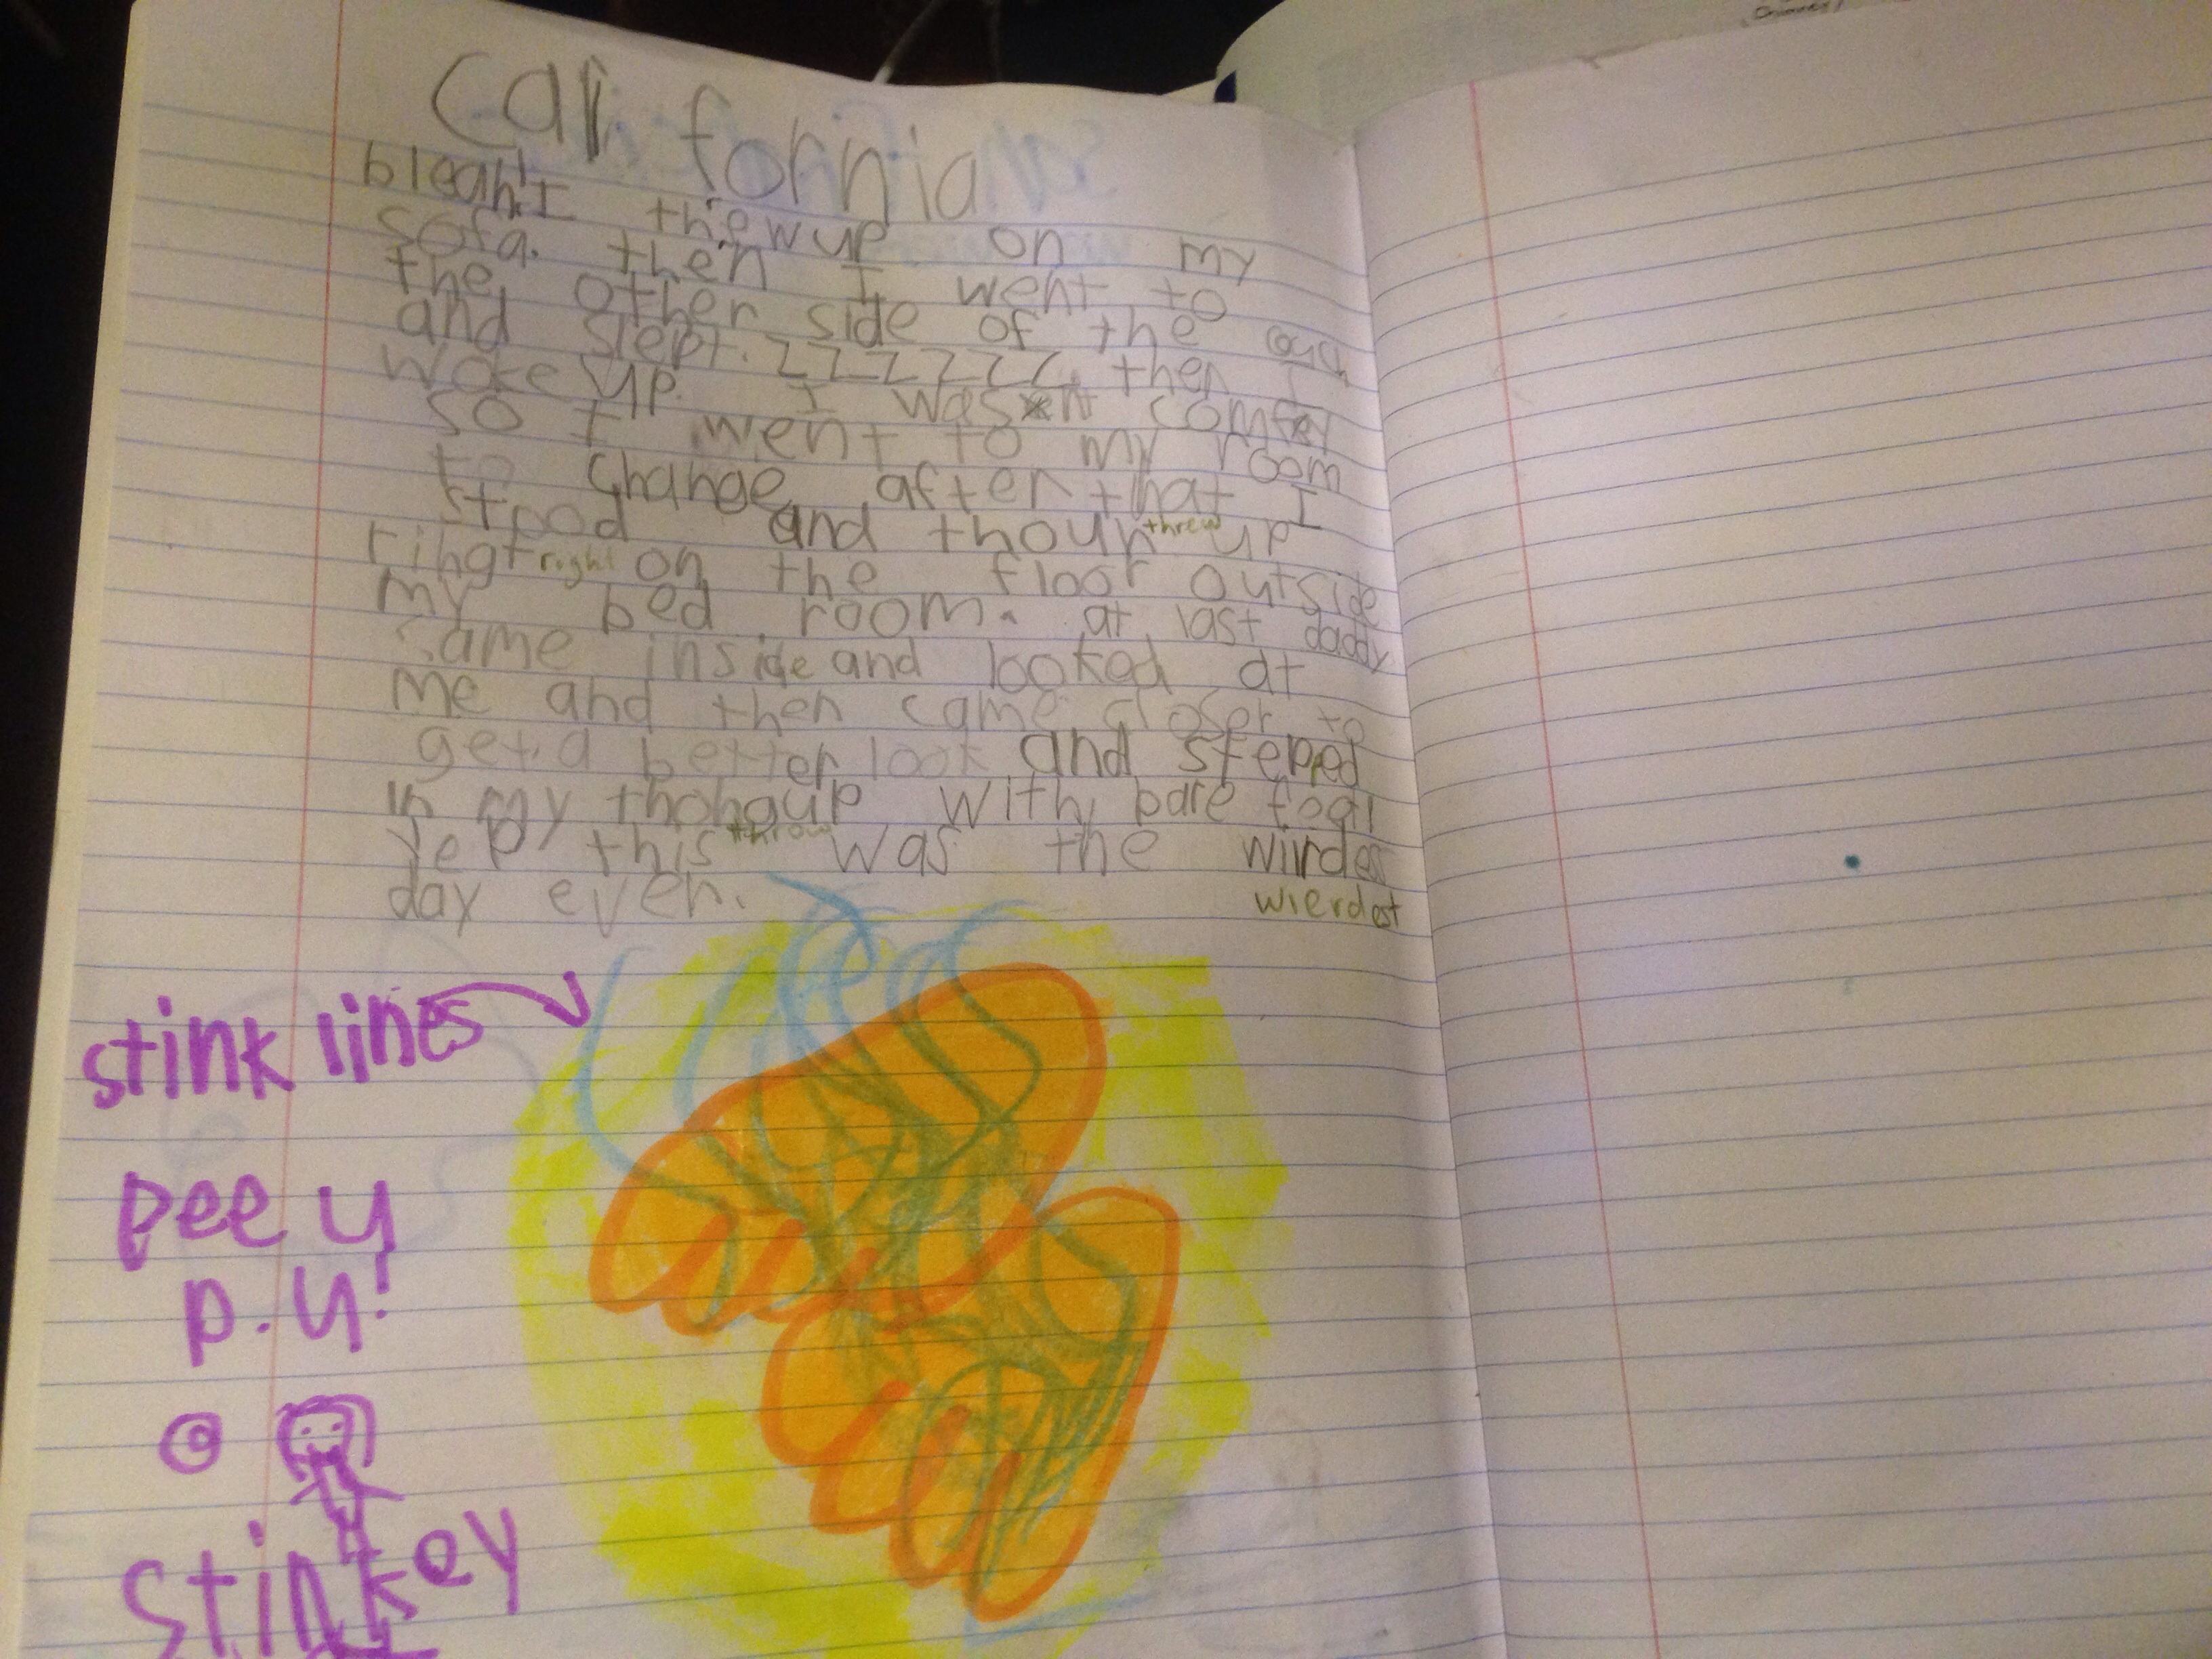 California
bleah! I thewup on my
sofa. then I went to
the other side of the couch
and slept. ZZZZZZZ. then I
woke up. I wasnt comfey
so I went to my room
to change after that I
stood and thouh threw up
ringt right on the floor outside
my bed room. at last daddy
came inside and looked at
me and then came closer to
get a better look and stepped
in my thohgup with bare feat
throw
Yep this was the wirdes
wierdest
day ever.
stink lines
pee u
p.u!
stinkey